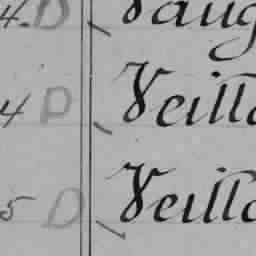 4. D Vaug
4 D Veilla
5 D Veilla